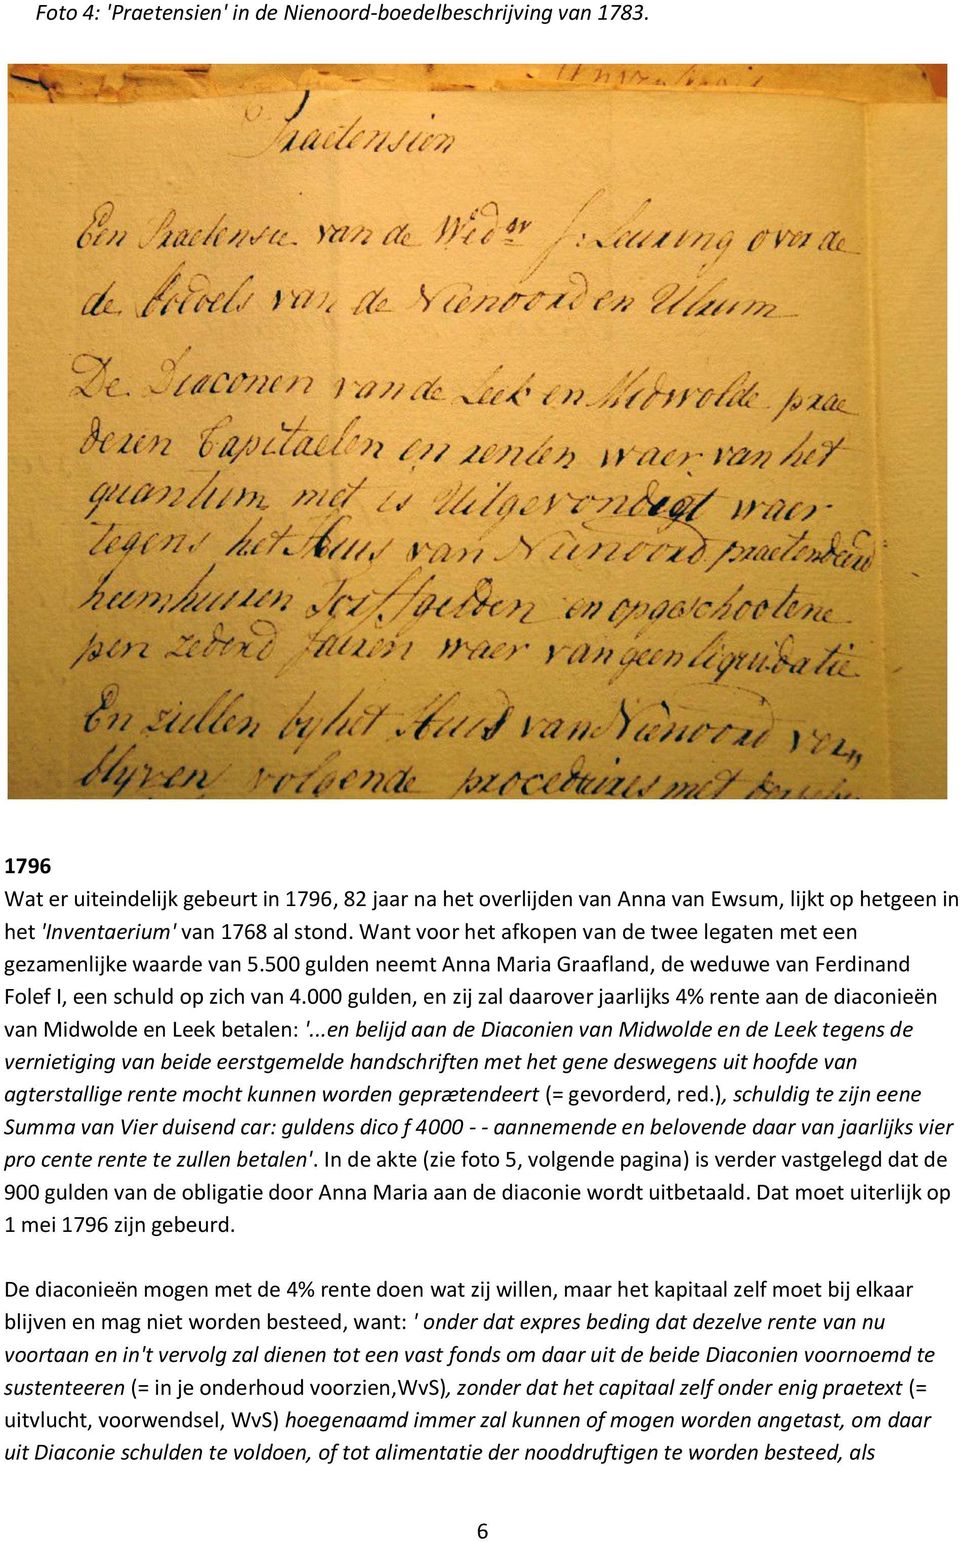 Foto 4: 'Praetensien' in de Nienoord-boedelbeschrijving van 1783.
Praetensien
Een Praetensie van de Wed: J: Leuring over de
de boedels van de Nienoord en Ulrum
De Diaconen van de Leek en Midwolde prae
deren Capitaelen en renten waer van het
quantum met is Uitgevondigt waer
tegens het Huis van Nienoord praetendeerd
heemhuiren Torffgelden en opgeschootene
pen zedend Jairen waer van geen liquidatie
En zullen by het Huis van Nienoord ver,,
blyven volgende procedures met
1796
Wat er uiteindelijk gebeurt in 1796, 82 jaar na het overlijden van Anna van Ewsum, lijkt op hetgeen in
het 'Inventaerium' van 1768 al stond. Want voor het afkopen van de twee legaten met een
gezamenlijke waarde van 5.500 gulden neemt Anna Maria Graafland, de weduwe van Ferdinand
Folef I, een schuld op zich van 4.000 gulden, en zij zal daarover jaarlijks 4% rente aan de diaconieën
van Midwolde en Leek betalen: '...en belijd aan de Diaconien van Midwolde en de Leek tegens de
vernietiging van beide eerstgemelde handschriften met het gene deswegens uit hoofde van
agterstallige rente mocht kunnen worden geprætendeert (= gevorderd, red.), schuldig te zijn eene
Summa van Vier duisend car: guldens dico f 4000 - - aannemende en belovende daar van jaarlijks vier
pro cente rente te zullen betalen'. In de akte (zie foto 5, volgende pagina) is verder vastgelegd dat de
900 gulden van de obligatie door Anna Maria aan de diaconie wordt uitbetaald. Dat moet uiterlijk op
1 mei 1796 zijn gebeurd.
De diaconieën mogen met de 4% rente doen wat zij willen, maar het kapitaal zelf moet bij elkaar
blijven en mag niet worden besteed, want: ' onder dat expres beding dat dezelve rente van nu
voortaan en in't vervolg zal dienen tot een vast fonds om daar uit de beide Diaconien voornoemd te
sustenteeren (= in je onderhoud voorzien,WvS), zonder dat het capitaal zelf onder enig praetext (=
uitvlucht, voorwendsel, WvS) hoegenaamd immer zal kunnen of mogen worden angetast, om daar
uit Diaconie schulden te voldoen, of tot alimentatie der nooddruftigen te worden besteed, als
6